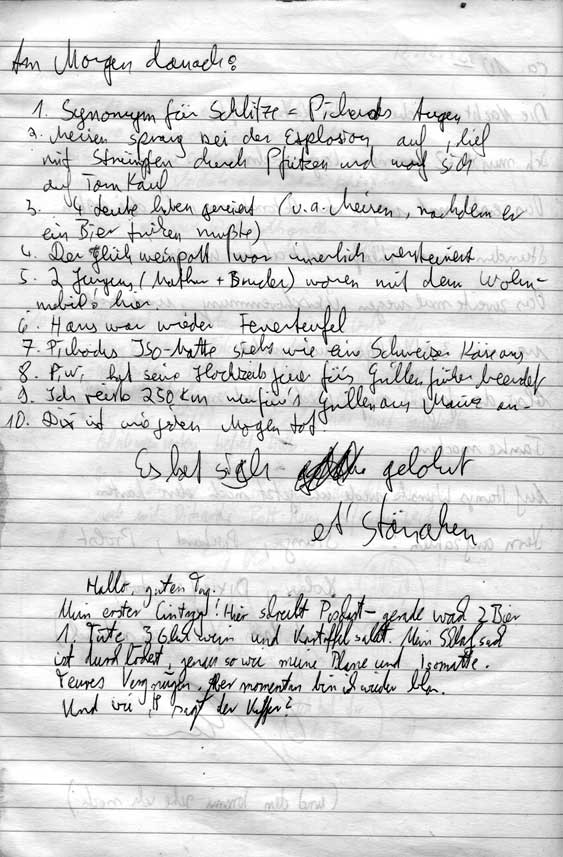 Am Morgen danach:
1. Synonym für Schlitze = Pickards Augen
2. Meiren sprang bei der Explosion auf, lief
mit Strümpfen durch Pfützen und warf sich
auf Tom Kauf
3. 4 Leute haben gereiert (u.a. Meiren, nachdem er
ein Bier trinken mußte)
4. Der Glühweinpott war innerlich versteinert
5. 2 Jürgens (+ Bruder) waren mit dem Wohn-
mobil hier.
6. Hans war wieder Feuerteufel
7. Pickards Iso-Matte sieht wie ein Schweizer Käse aus
8. Piwi hat seine Hochzeitsfeier für's Grillen früher beendet
9. Ich reiste 250 km nur für's Grillen aus Mainz an-
10. Dix ist wie jeden Morgen tot!
Es hat sich gelohnt
et' Stänchen
Hallo, guten Tag.
Mein erster Eintrag! Hier schreibt - gerade nach 2 Bier
1 Tüte, 3 Glühwein und Kartoffelsalat. Mein Schlafsack
ist durchlöchert, genau so wie meine Plane und Isomatte.
Teures Vergnügen. Aber momentan bin ich wieder blau.
Und wie der Kaffer?